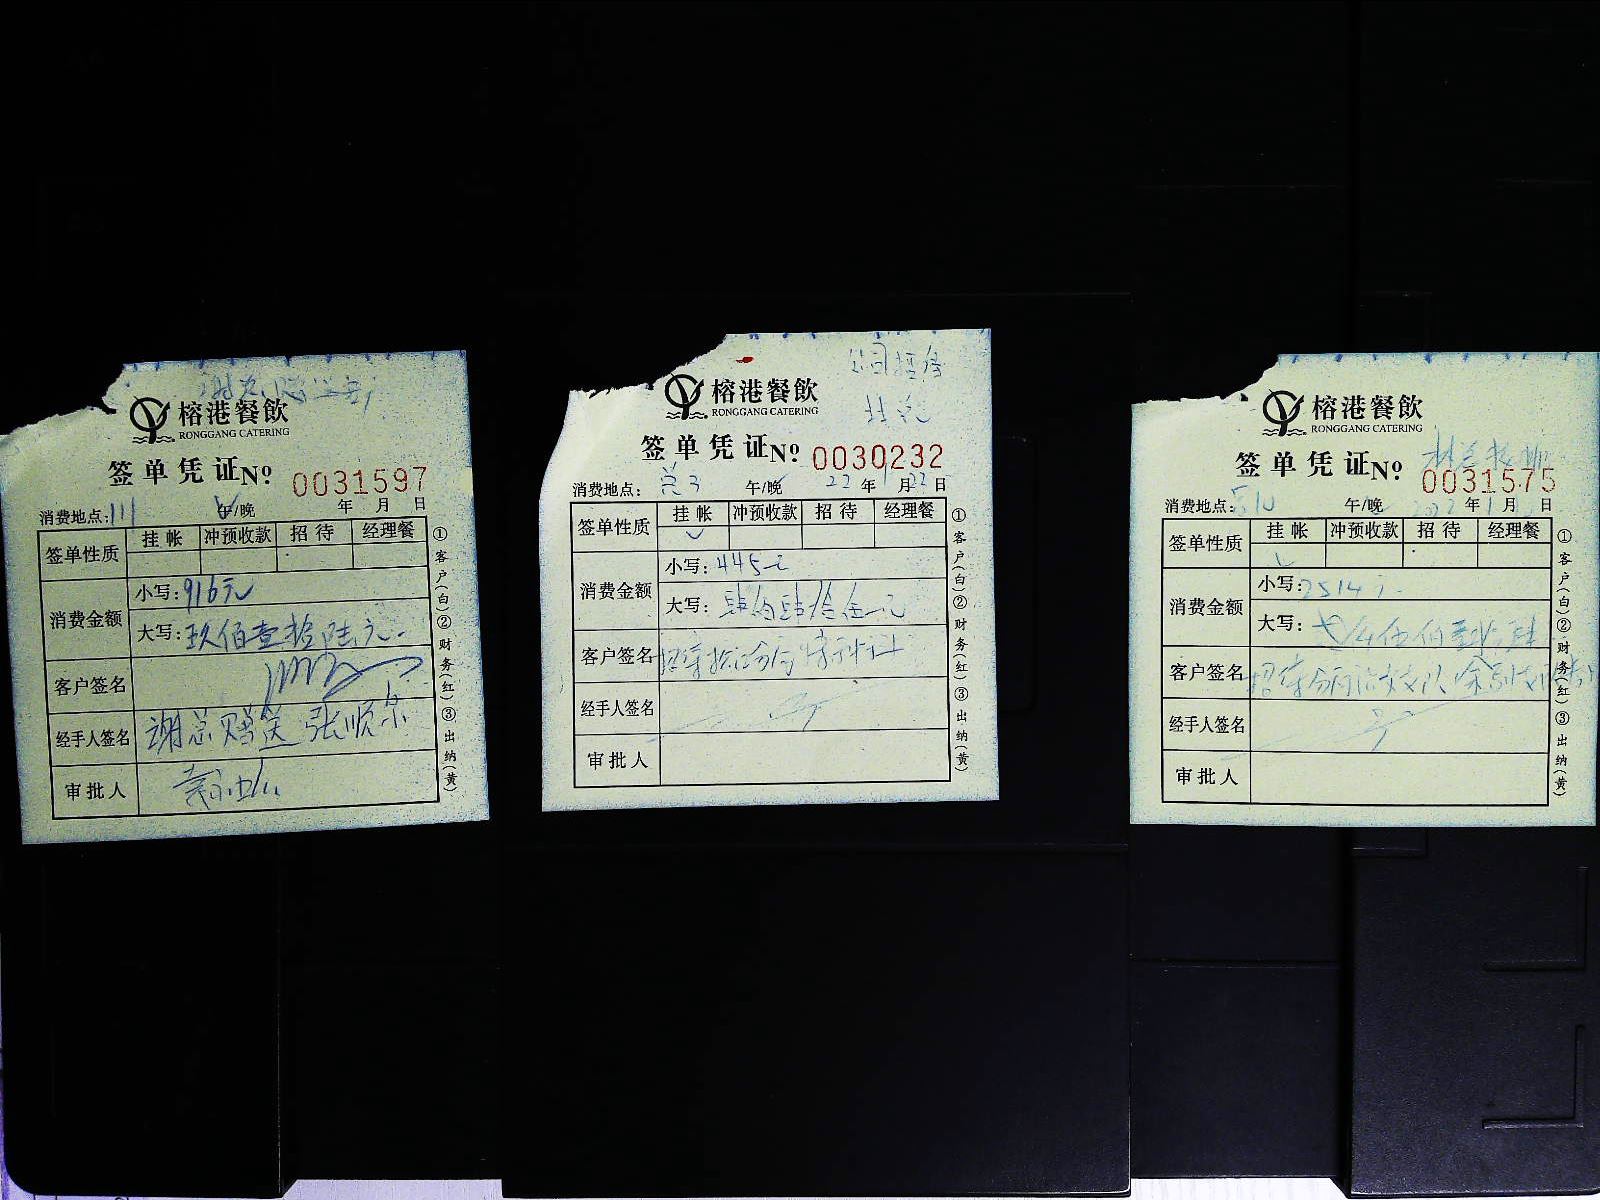 榕港餐飲
RONGGANG CATERING
签单凭证№ 0031597
消费地点:111 午/晚 年 月 日
签单性质 挂帐 冲预收款 招待 经理餐
消费金额
小写:916元
大写:玖佰壹拾陆元
客户签名
经手人签名 谢总赠送 张顺
审批人
①客户(白)②财务(红)③出纳(黄)
公司招待
榕港餐飲
RONGGANG CATERING
签单凭证№ 0030232
消费地点: 午/晚 22年1月22日
签单性质 挂帐 冲预收款 招待 经理餐
消费金额
小写:445元
大写:肆佰肆拾伍元
客户签名 招待
经手人签名
审批人
①客户(白)②财务(红)③出纳(黄)
榕港餐飲
RONGGANG CATERING
签单凭证№ 0031575
消费地点: 午/晚 2022年1月 日
签单性质 挂帐 冲预收款 招待 经理餐
消费金额
小写:2514元
大写:仟伍佰壹拾肆
客户签名 招待
经手人签名
审批人
①客户(白)②财务(红)③出纳(黄)